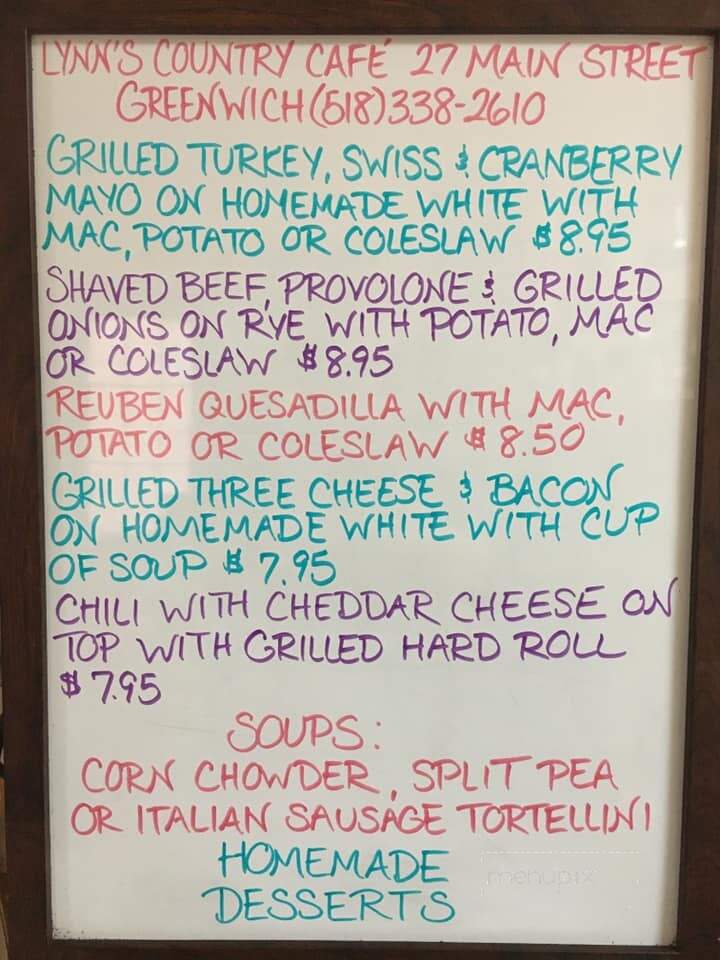 LYNN'S COUNTRY CAFÉ 27 MAIN STREET
GREENWICH (518)338-2610
GRILLED TURKEY, SWISS & CRANBERRY
MAYO ON HOMEMADE WHITE WITH
MAC, POTATO OR COLESLAW $8.95
SHAVED BEEF, PROVOLONE & GRILLED
ONIONS ON RYE WITH POTATO, MAC
OR COLESLAW $8.95
REUBEN QUESADILLA WITH MAC,
POTATO OR COLESLAW $8.50
GRILLED THREE CHEESE & BACON
ON HOMEMADE WHITE WITH CUP
OF SOUP $7.95
CHILI WITH CHEDDAR CHEESE ON
TOP WITH GRILLED HARD ROLL
$7.95
SOUPS:
CORN CHOWDER, SPLIT PEA
OR ITALIAN SAUSAGE TORTELLINI
HOMEMADE
DESSERTS
menupix